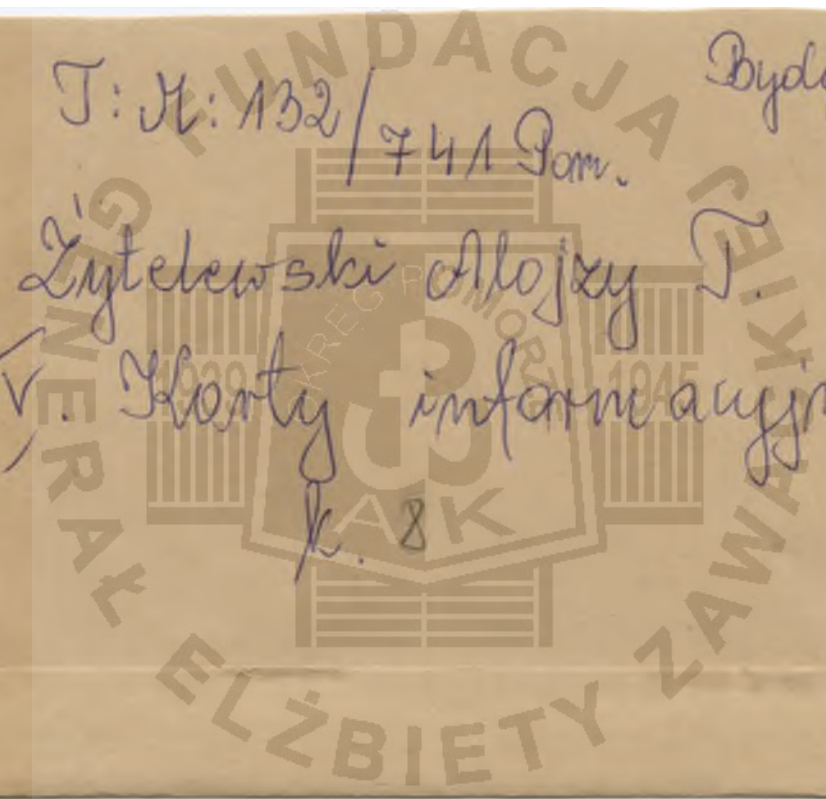 Bydg
T: M: 132/741 Pom.
Żytelewski Alojzy T.
V. Karty informacyjn
k. 8
FUNDACJA GENERAŁ ELŻBIETY ZAWACKIEJ
OKRĘG POMORZE
1939 1945
AK